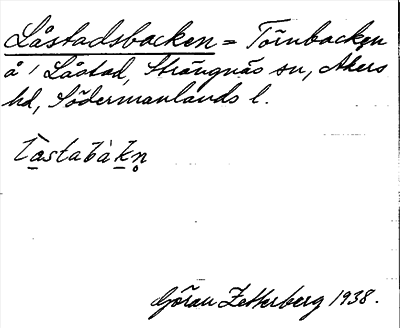 Låstadsbacken = Törnbacken
å / Låstad, Strängnäs sn, Åkers
hd, Södermanlands l.
Göran Zetterberg 1938.